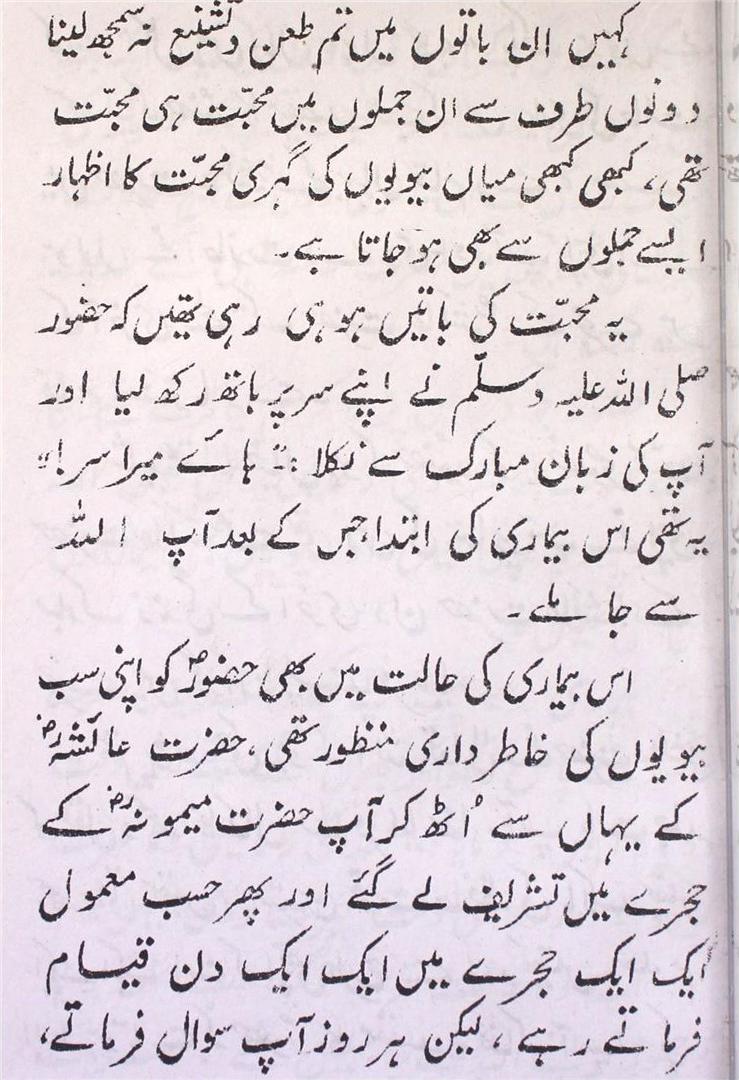 کہیں ان باتوں میں تم طعن و تشنیع نہ سمجھ لینا
دونوں طرف سے ان جملوں میں محبّت ہی محبّت
تھی، کبھی کبھی میاں بیویوں کی گہری محبّت کا اظہار
ایسے جملوں سے بھی ہو جاتا ہے۔
یہ محبّت کی باتیں ہو ہی رہی تھیں کہ حضور
صلی اللہ علیہ وسلّم نے اپنے سر پر ہاتھ رکھ لیا اور
آپ کی زبان مبارک سے نکلا :۔ "ہائے میرا سر!"
یہ تھی اس بیماری کی ابتدا، جس کے بعد آپ اللہ
سے جا ملے۔
اس بیماری کی حالت میں بھی حضورؐ کو اپنی سب
بیویوں کی خاطر داری منظور تھی، حضرت عائشہؓ
کے یہاں سے اُٹھ کر آپ حضرت میمونہؓ کے
حجرے میں تشریف لے گئے اور پھر حسب معمول
ایک ایک حجرے میں ایک ایک دن قیام
فرماتے رہے، لیکن ہر روز آپ سوال فرماتے،